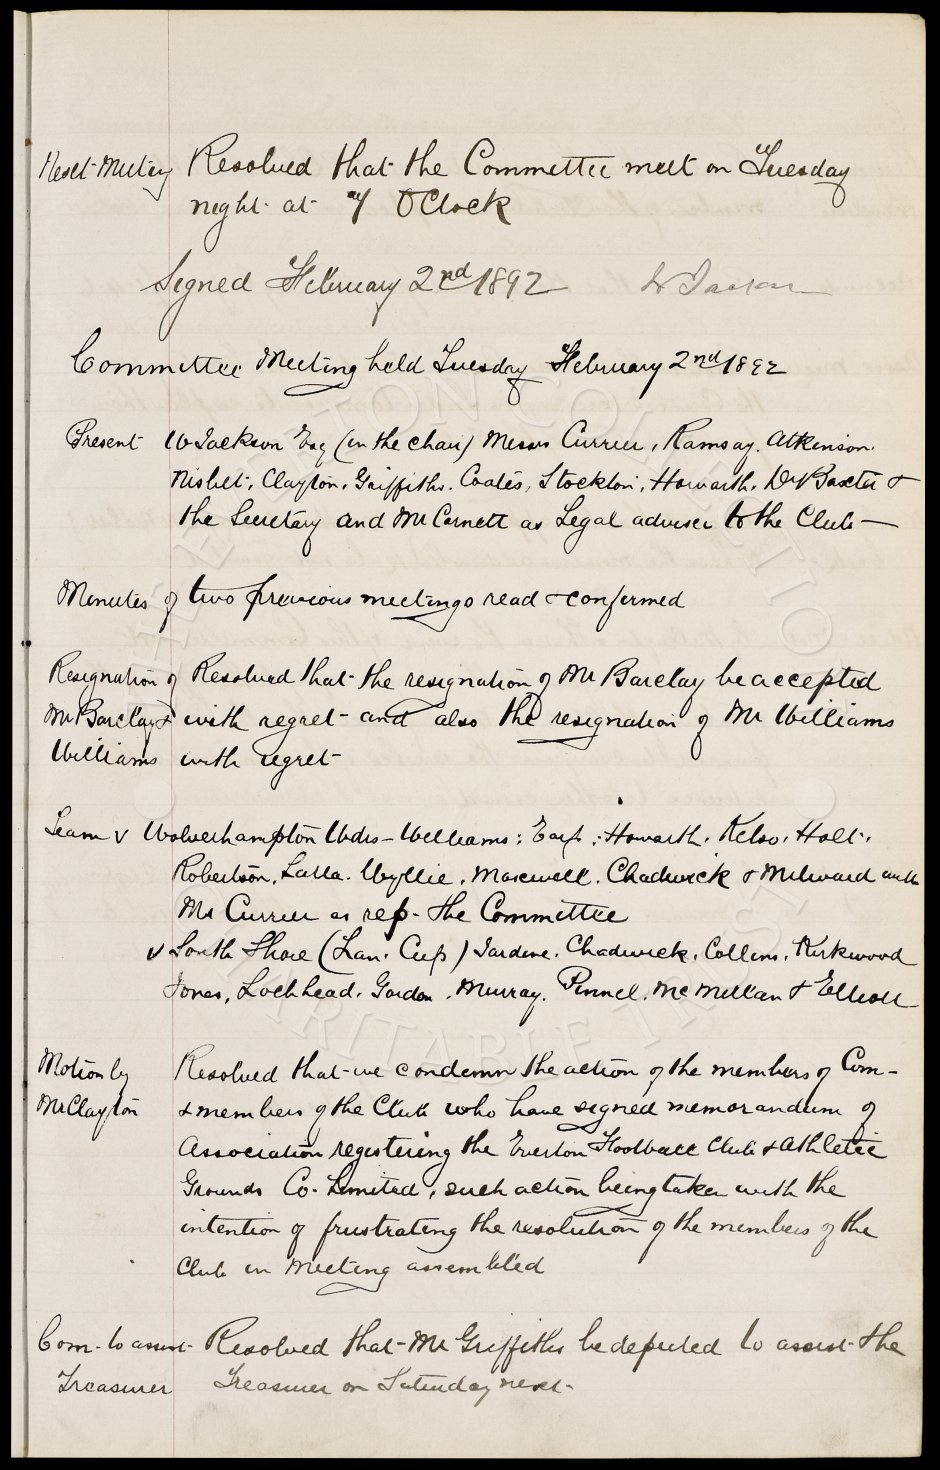 Next Meeting Resolved that the Committee meet on Tuesday
night at 7 OClock
Signed February 2nd 1892 W Jackson
Committee Meeting held Tuesday February 2nd 1892
Present W Jackson Esq (in the chair) Messrs Currier, Ramsay, Atkinson.
Nisbet, Clayton, Griffiths. Coates, Stockton, Howarth, Dr Baxter &
the Secretary and Mr Cornett as Legal adviser to the Club—
Minutes of two previous meetings read & confirmed
Resignation of Resolved that the resignation of Mr Barclay be accepted
Mr Barclay & with regret and also the resignation of Mr Williams
Williams with regret
Team v Wolverhampton Wdrs — Williams: Earp: Howarth. Kelso. Holt.
Robertson, Latta. Wyllie. Maxwell. Chadwick & Milward with
Mr Currier as rep. the Committee
v South Shore (Lan. Cup) Jardine. Chadwick. Collins. Kirkwood
Jones, Lochhead. Gordon. Murray. Pinnel. McMillan & Elliott
Motion by Resolved that we condemn the action of the members of Com-
Mr Clayton & members of the Club who have signed memorandum of
Association registering the Everton Football Club & Athletic
Grounds Co. Limited, such action being taken with the
intention of frustrating the resolution of the members of the
Club in Meeting assembled
Com- to assist Resolved that Mr Griffiths be deputed to assist the
Treasurer Treasurer on Saturday next.